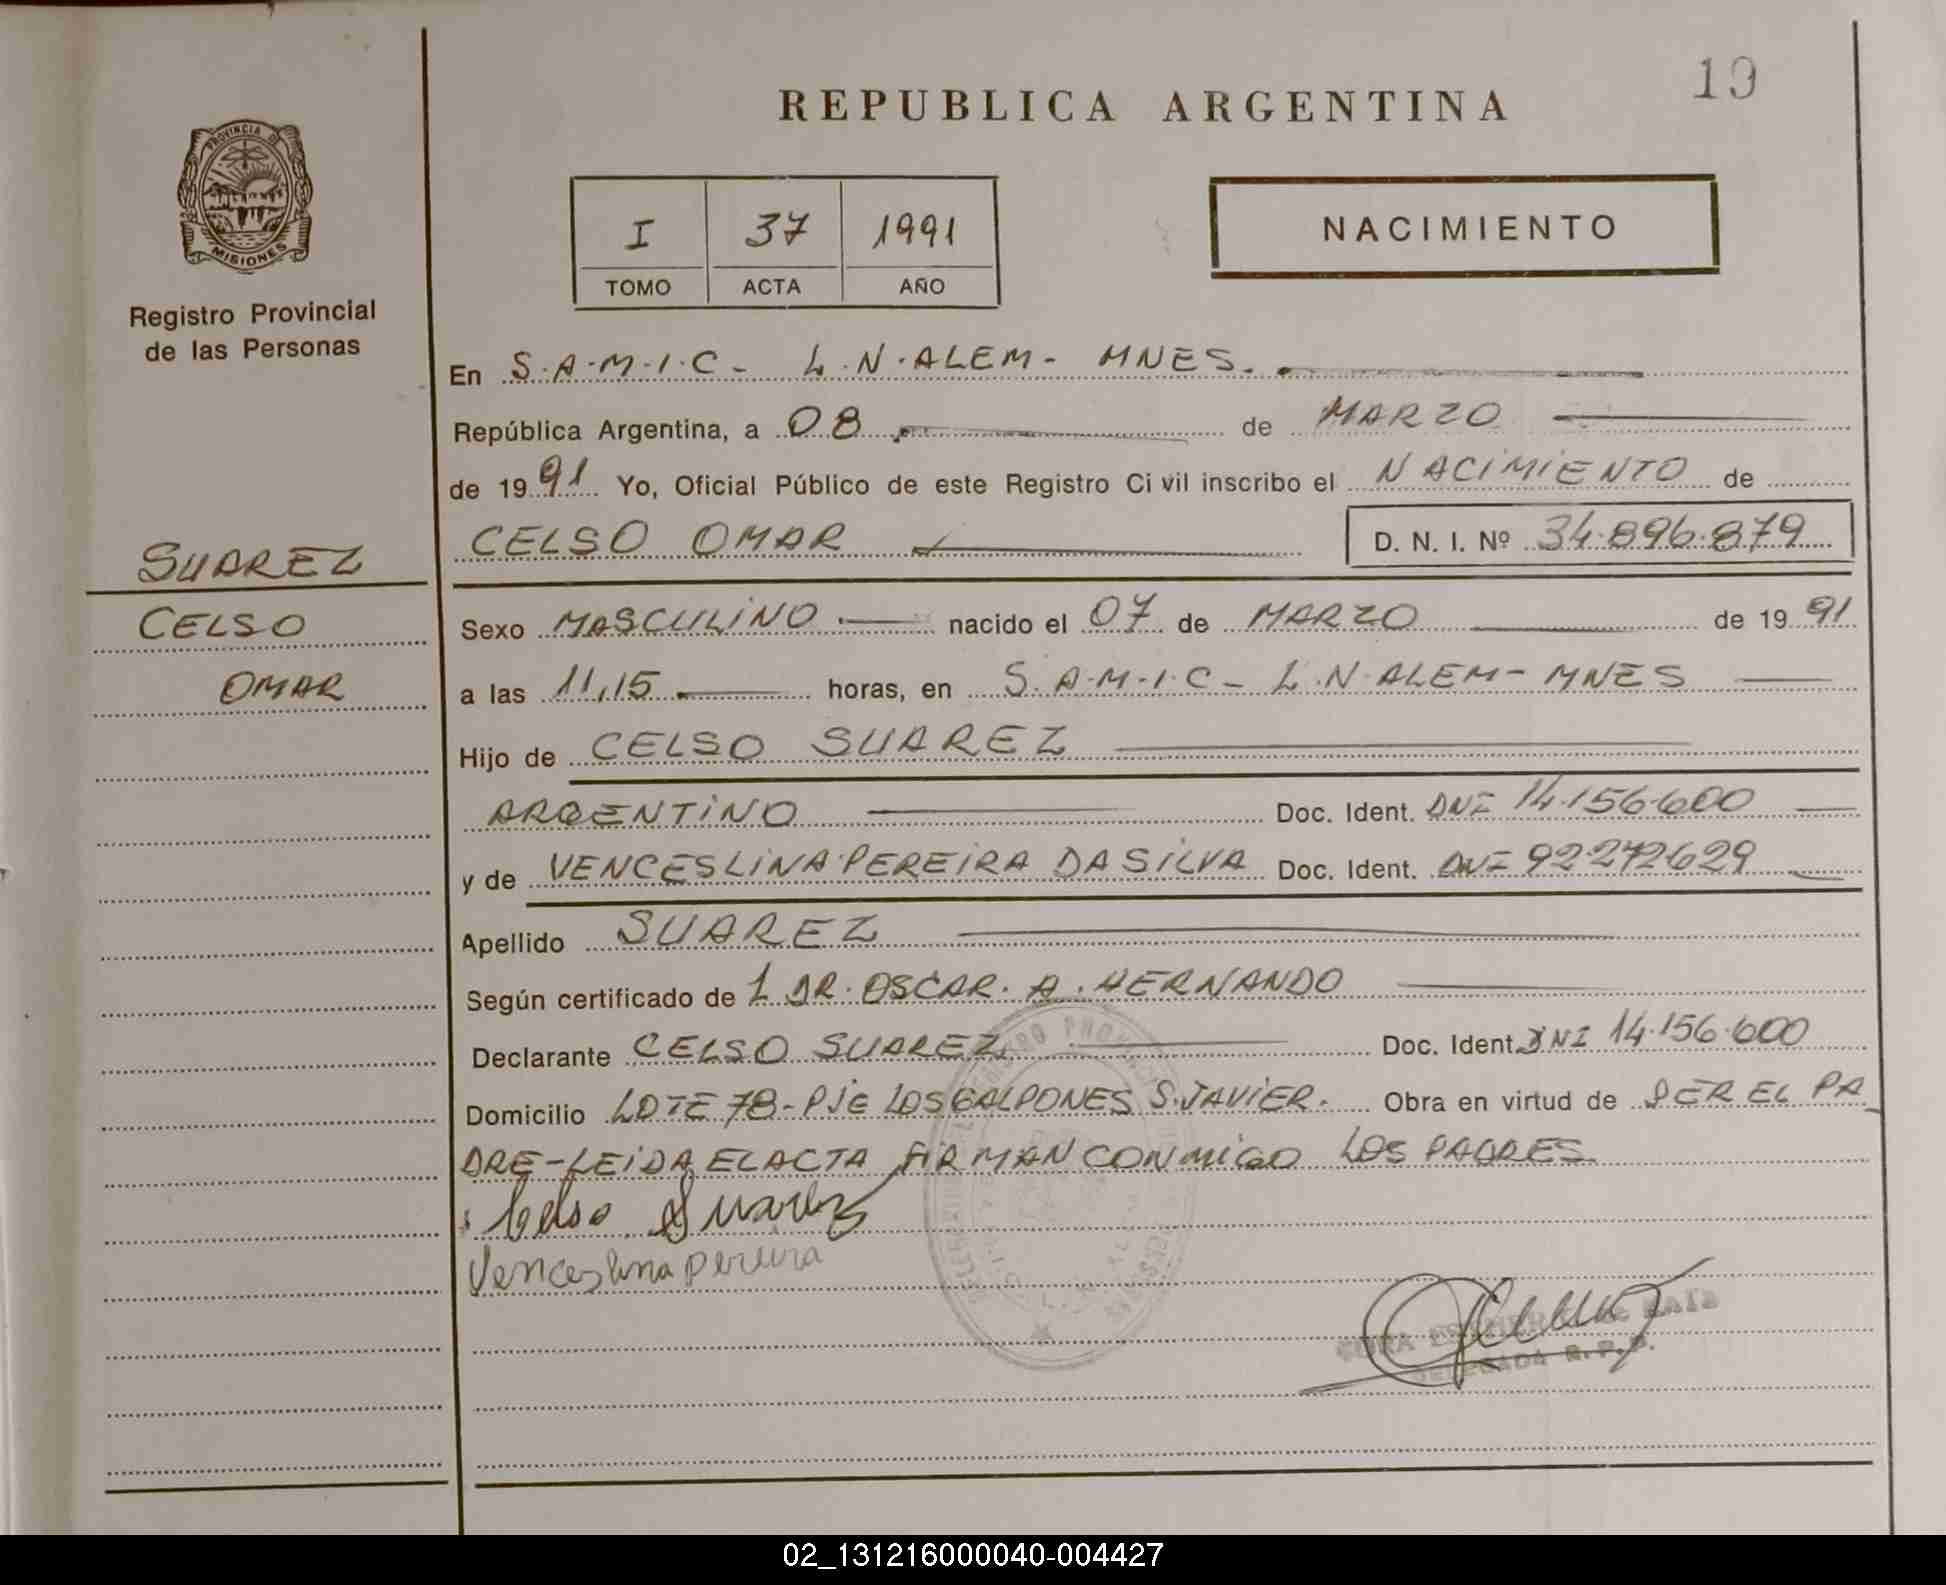 19
REPUBLICA ARGENTINA
PROVINCIA DE
MISIONES
Registro Provincial
de las Personas
I 37 1991
TOMO ACTA AÑO
NACIMIENTO
En S.A.M.I.C- L.N.ALEM- MNES.
República Argentina, a 08 de MARZO
de 1991 Yo, Oficial Público de este Registro Civil inscribo el NACIMIENTO de
CELSO OMAR D. N. I. Nº 34.896.879
SUAREZ
CELSO
OMAR
Sexo MASCULINO nacido el 07 de MARZO de 1991
a las 11,15 horas, en S.A.M.I.C- L.N.ALEM- MNES
Hijo de CELSO SUAREZ
ARGENTINO Doc. Ident. DNI 14.156.600
y de VENCESLINA PEREIRA DA SILVA Doc. Ident. DNI 92.272.629
Apellido SUAREZ
Según certificado de 1 DR. OSCAR. A. HERNANDO
Declarante CELSO SUAREZ Doc. Ident. DNI 14.156.600
Domicilio LOTE 78- PJE LOS GALPONES S.JAVIER. Obra en virtud de SER EL PA_
DRE-LEIDA EL ACTA FIRMAN CONMIGO LOS PADRES
Celso Suarez
Venceslina pereira
DELEGADA R.P.P.
02_131216000040-004427